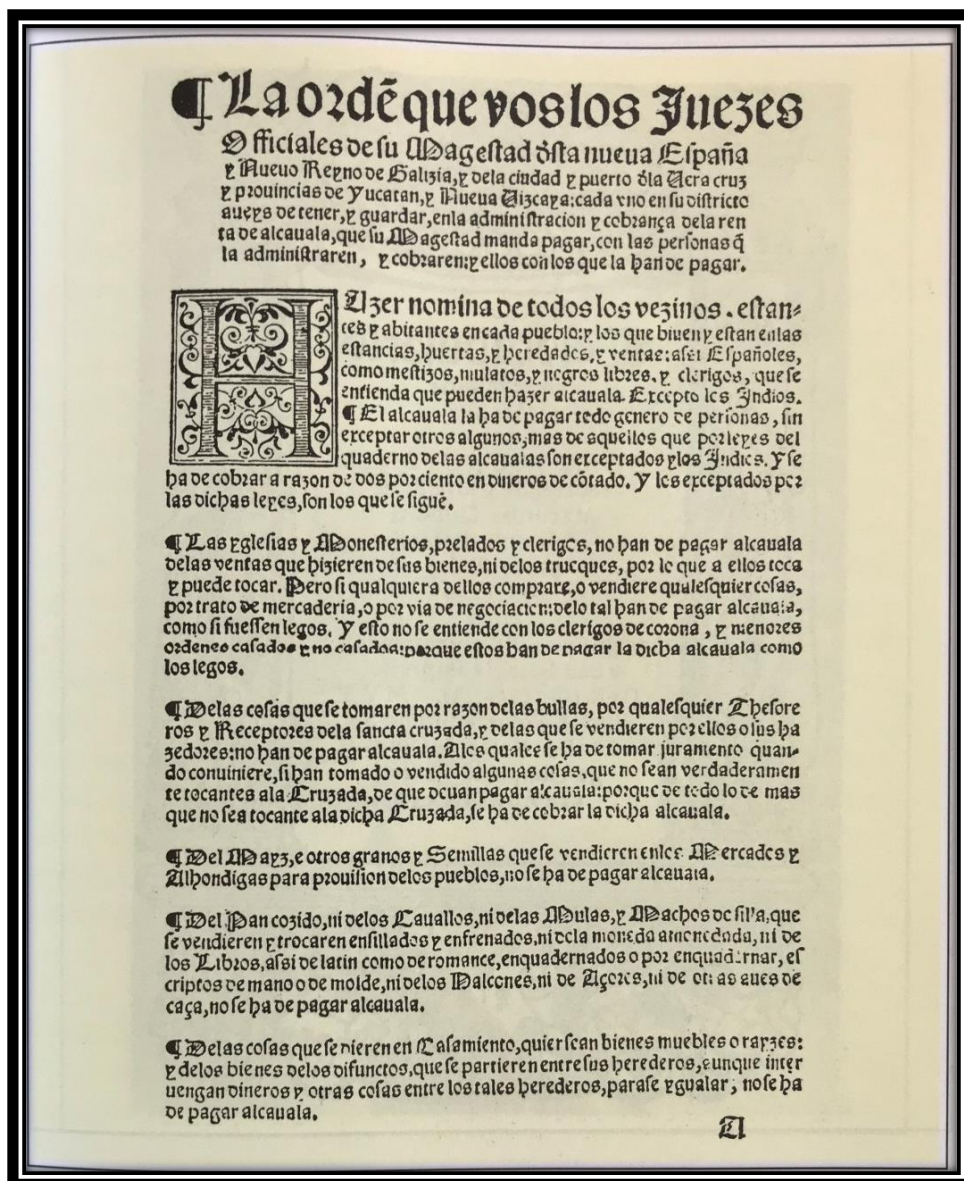 ¶ La ordē que vos los Juezes
Officiales de su Magestad dsta nueua España
y Nueuo Reyno de Galizia, y dela ciudad y puerto dla Uera cruz
y prouincias de Yucatan, y Nueua Uizcaya: cada vno en su districto
aueys de tener, y guardar, enla administracion y cobrança dela ren
ta de alcauala, que su Magestad manda pagar, con las personas q̄
la administraren, y cobraren: y ellos con los que la han de pagar.
HAzer nomina de todos los vezinos. estan-
tes y abitantes en cada pueblo: y los que biuen y estan enlas
estancias, huertas, y heredades, y ventas: assi Españoles,
como mestizos, mulatos, y negros libres. y clerigos, que se
entienda que pueden hazer alcauala. Excepto los Indios.
¶ El alcauala la ha de pagar todo genero de personas, sin
exceptar otros algunos, mas de aquellos que por leyes del
quaderno delas alcaualas son exceptados y los Indios. Y se
ha de cobrar a razon de dos por ciento en dineros de cōtado. Y los exceptados por
las dichas leyes, son los que se siguē.
¶ Las yglesias y Monesterios, prelados y clerigos, no han de pagar alcauala
delas ventas que hizieren de sus bienes, ni delos trucques, por lo que a ellos toca
y puede tocar. Pero si qualquiera dellos comprare, o vendiere qualesquier cosas,
por trato de mercaderia, o por via de negociacion: delo tal han de pagar alcauala,
como si fuessen legos. Y esto no se entiende con los clerigos de corona, y menores
ordenes casados y no casados: porque estos han de pagar la dicha alcauala como
los legos.
¶ Delas cosas que se tomaren por razon delas bullas, por qualesquier Thesore
ros y Receptores dela sancta cruzada, y delas que se vendieren por ellos o sus ha
zedores: no han de pagar alcauala. Alos quales se ha de tomar juramento quan-
do conuiniere, si han tomado o vendido algunas cosas, que no sean verdaderamen
te tocantes ala Cruzada, de que deuan pagar alcauala: porque de todo lo de mas
que no sea tocante ala dicha Cruzada, se ha de cobrar la dicha alcauala.
¶ Del Mayz, e otros granos y Semillas que se vendieren enlos Mercados y
Alhondigas para prouision delos pueblos, no se ha de pagar alcauala.
¶ Del Pan cozido, ni delos Cauallos, ni delas Mulas, y Machos de silla, que
se vendieren y trocaren ensillados y enfrenados, ni dela moneda amonedada, ni de
los Libros, assi de latin como de romance, enquadernados o por enquadernar, es
criptos de mano o de molde, ni delos Halcones, ni de Açores, ni de otras aues de
caça, no se ha de pagar alcauala.
¶ Delas cosas que se dieren en Casamiento, quier sean bienes muebles o rayzes:
y delos bienes delos difunctos, que se partieren entre sus herederos, aunque inter
uengan dineros y otras cosas entre los tales herederos, para se ygualar, no se ha
de pagar alcauala.
Al